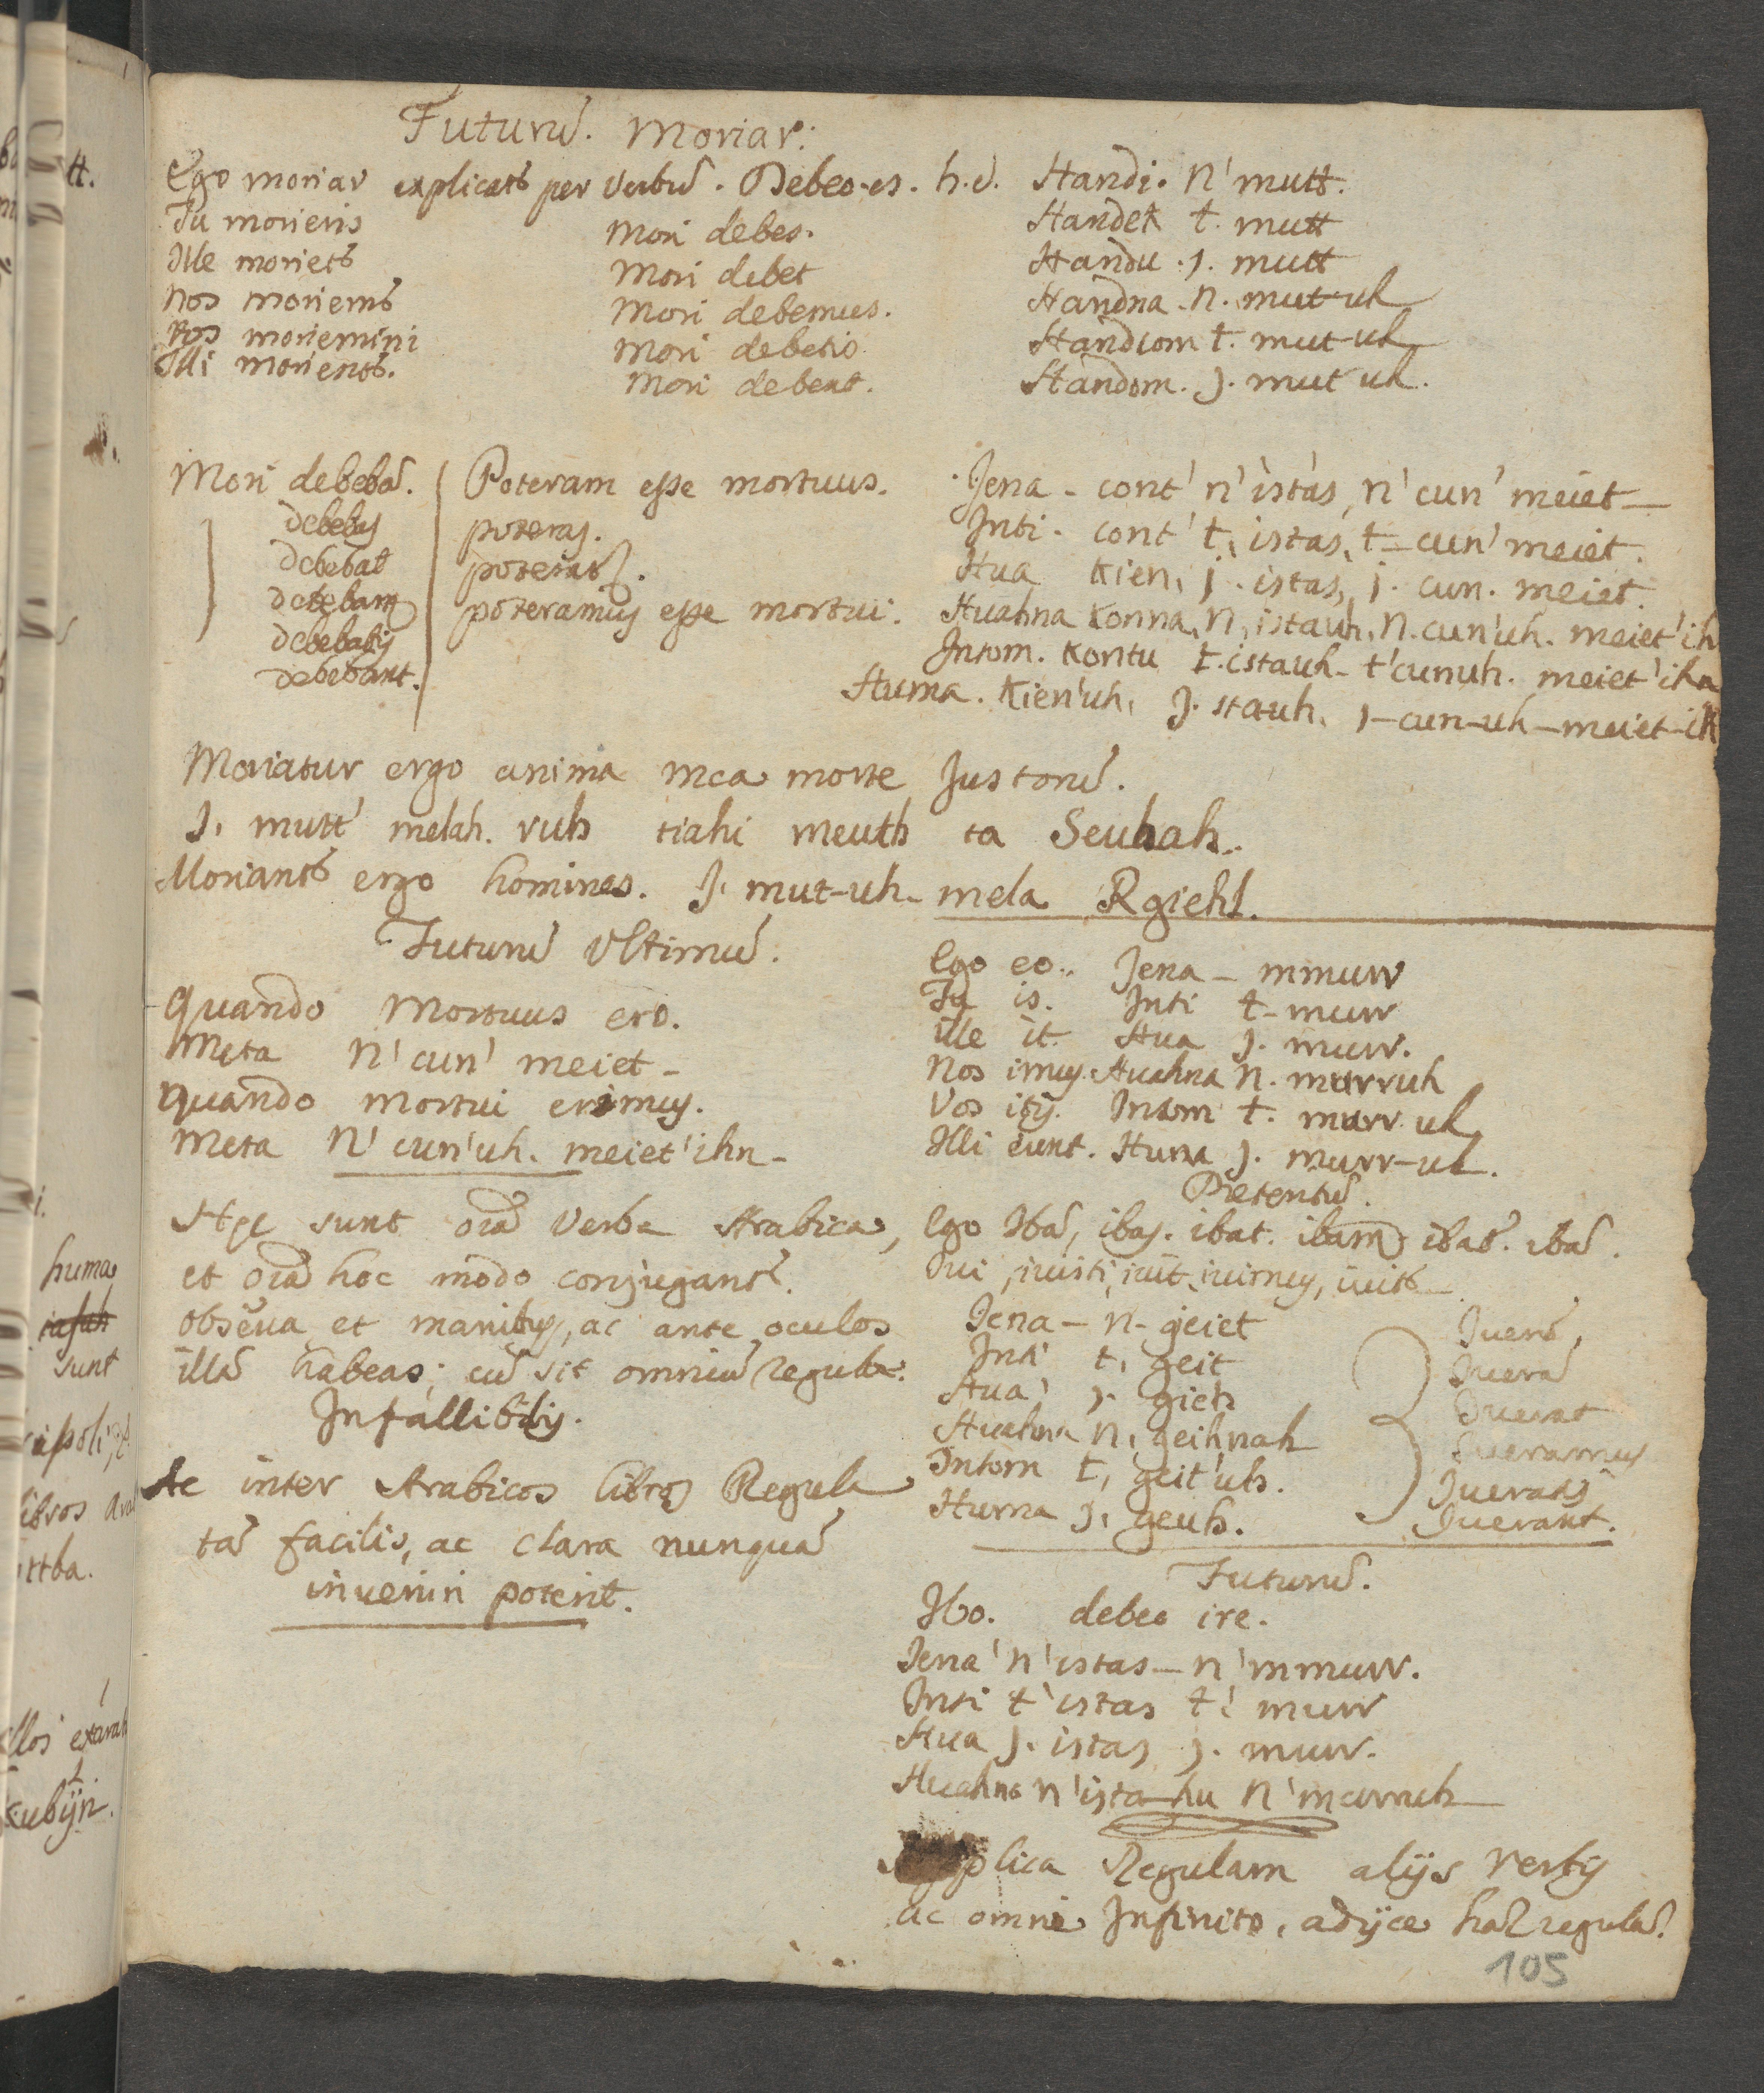 Futurū. Moriar:
Ego moriar explicatʳ per verbū. Debeo.es. h.d. Handi. N' mutt.
Tu morieris Mori debes. Handek t. mutt
Ille morietʳ Mori debet Handu . J. mutt
Nos moriemʳ Mori debemus. Handna . N. mut-uh
Vos moriemini Mori debetis Handcom t. mut-uh
Illi morientʳ. Mori debent. Handom. J. mut uh.
Mori debebā. Poteram esse mortuus. Jena - cont' n'istas, n'cun' meiet
debebas poteras. Inti - cont' t, istas, t-cun' meiet.
debebat poterat. Hua kien, j. istas, j. cun. meiet.
debebam9 poteramus esse mortui. Huahna konna, N, istauh, N. cun'uh. meiet'ih
debebatis Intom. Kontu t.istauh - t'cunuh. meiet'iha
debebant. Huma. Kien'uh, J. stauh, J-cun-uh-meiet-ih
Moriatur ergo anima mea morte Justorū.
J. mutt melah. ruh tiahi meuth ta Seuhah..
Moriantʳ ergo homines. J. mut-uh- mela Rgiehl.
Futurū Ultimū.
Quando Mortuus ero.
Meta N'cun' meiet -
Quando mortui erimus.
Meta N'cun'uh. meiet'ihn -
Hęc sunt oīa Verba Arabica,
et oīa hoc modo conjugantʳ.
Observa et manibus, ac ante oculos
illā habeas; cū sit omniū regula
Infallibilis.
Ac inter Arabicos libros Regula
tā facilis, ac clara nunquā
inveniri poterit.
Ego eo.. Jena - mmurr
Tu is. Inti t-murr
ille it. Hua J. murr.
Nos imus. Huahna N. murruh
Vos itis. Intom t. murr uh
Illi eunt. Huma J. murr-uh.
Pretentū.
Ego Ibā, ibas. ibat. ibam9 ibat'. ibā.
Ivi, ivisti, ivit, ivimus, ivit'
Jena - n- geiet Iverā,
Inti t, geit Iverā
Hua, J. gieh Iverat
Huahna N, geihnah Iveramus
Intom t, geit'uh. Iveratis
Huma J, geuh. Iverant.
Futurū.
Ibo. debeo ire.
Jena 'n'istas - n'mmurr.
Inti t'istas t' murr
Hua J. istas J. murr.
Huahna n'ista-hu N'murruh
Applica Regulam alijs verbis
ac omni Infinito, adijce hāc regulā.
105